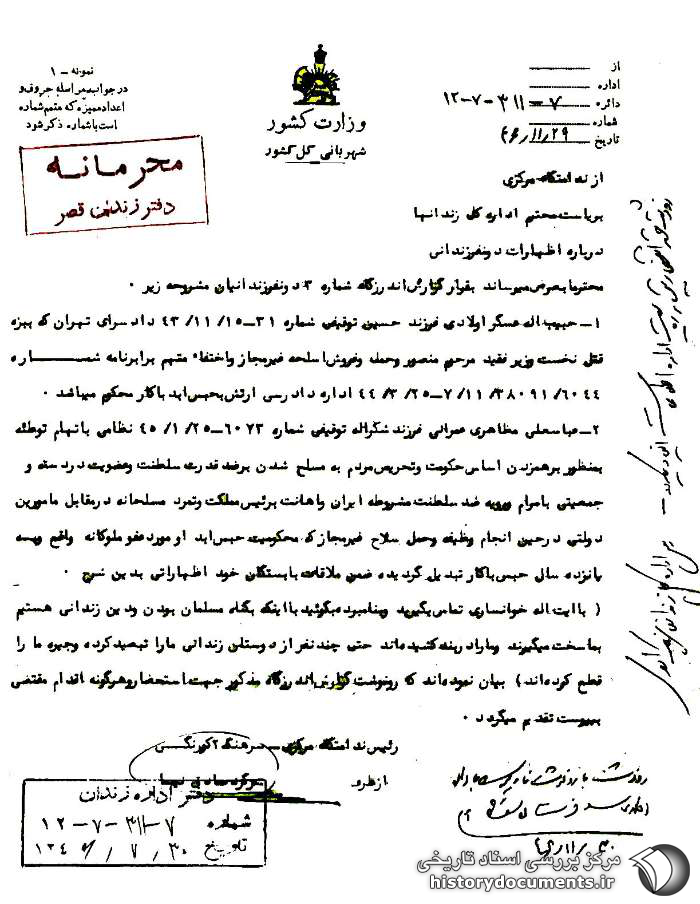 نمونه – ۱
در جواب مراسله حروف و
اعداد ممیزه که متمم شماره
است با شماره ذکر شود
محرمانه
دفتر زندان قصر
وزارت کشور
شهربانی کل کشور
از
اداره
دائره ۷–۳۱۱–۷–۱۲
شماره
تاریخ ۴۶/۱۱/۲۹
از ندامتگاه مرکزی
بریاست محترم اداره کل زندانها
درباره اظهارات دونفرزندانی
محترما بعرض میرساند بقرار گزارش اندرزگاه شماره ۳ دونفرزندانیان مشروحه زیر ۰
۱– حبیب اله عسگر اولادی فرزند حسین توقیفی شماره ۳۱–۴۳/۱۱/۱۵ دادسرای تهران که ببزه
قتل نخست وزیر فقید مرحوم منصور وحمل وفروش اسلحه غیرمجاز واختفاء متهم برابرنامه شمــــاره
۳۸۰۹۱/۶۰۴۴/۱۱/۷–۴۴/۳/۲۵ اداره دادرسی ارتش بحبس ابد باکار محکوم میباشد ۰
۲– عباسعلی مظاهری عمرانی فرزند شکراله توقیفی شماره ۶۰۷۳–۴۵/۱/۲۵ نظامی باتهام توطئه
بمنظور برهمزدن اساس حکومت وتحریص مردم به مسلح شدن برضد قدرت سلطنت وعضویت دردسته و
جمعیتی بامرام ورویه ضد سلطنت مشروطه ایران واهانت برئیس مملکت وتمرد مسلحانه درمقابل مامورین
دولتی درحین انجام وظیفه وحمل سلاح غیرمجاز که محکومیت حبس ابد او موردعفو ملوکانه واقع وبسه
پانزده سال حبس باکار تبدیل گردیده ضمن ملاقات بابستگان خود اظهاراتی بدین شرح ۰
( باایت اله خوانساری تماس بگیرید وبنامبرده بگوئید بااینکه بگناه مسلمان بودن ودین زندانی هستیم
بماسخت میگیرند ومارادربند کشیده‌اند حتی چندنفر از دوستان زندانی مارا تبعید کرده وجیره ما را
قطع کرده‌اند ) بیان نموده‌اند که رونوشت گزارش اندرزگاه مذکور جهت استحضار وهرگونه اقدام مقتضی
بپیوست تقدیم میگردد ۰
رئیس ندامتگاه مرکزی – سرهنگ ۲ کورنگسی
ازطرف
دفتر اداره زندان
شماره ۷–۳۱۱–۷–۱۲
تاریخ ۳۰/۷/۱۳۴۶
مرکز بررسی اسناد تاریخی
historydocuments.ir